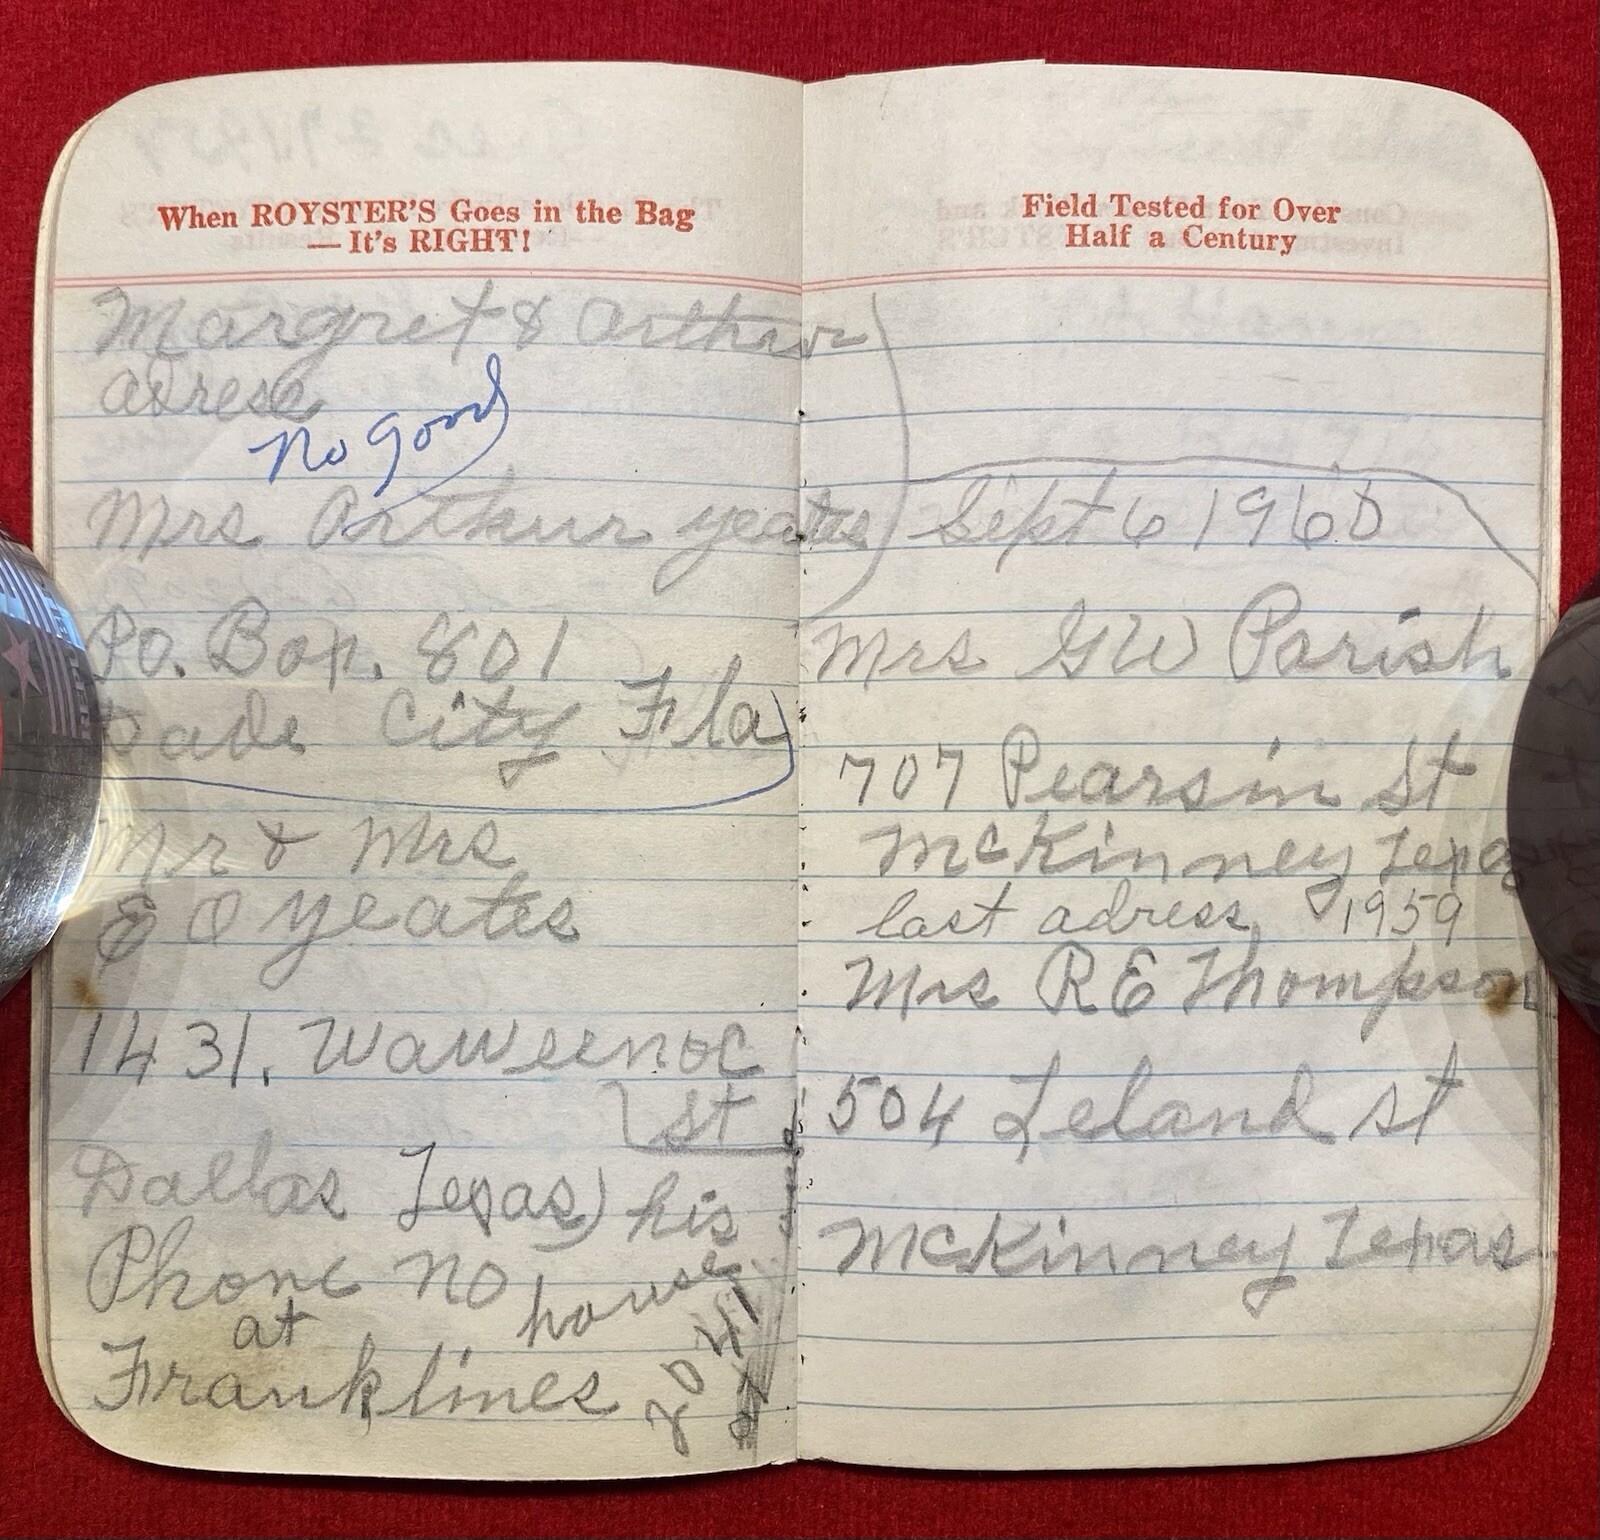 When ROYSTER'S Goes in the Bag
— It's RIGHT!
Margret & Arthur
adress
No good
Mrs Arthur yeates
Po. Box. 801
Dade City Fla
Mr & Mrs
E O Yeates
1431. Waweenoc
St
Dallas Texas) his
Phone No
house
at
Franklines
Field Tested for Over
Half a Century
Sept 6 1960
Mrs GW Parish
707 Pearsin St
McKinney Texas
last adress, 1959
Mrs RE Thompson
504 Leland st
McKinney Texas